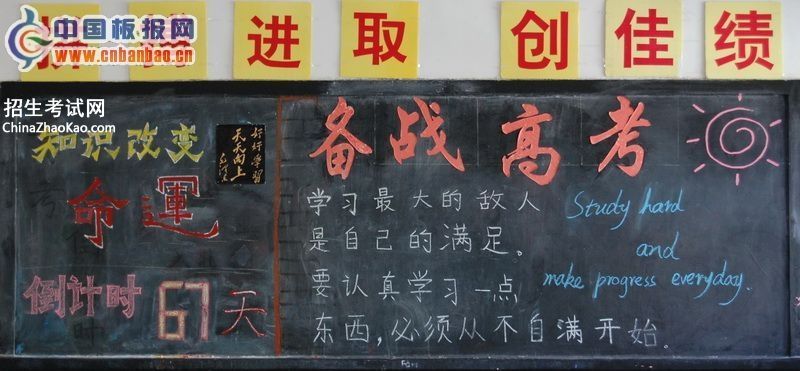 进取 创佳绩
中国板报网
www.cnbanbao.cn
招生考试网
ChinaZhaoKao.com
知识改变
命運
好好学習
天天向上
毛泽东
倒计时 67 天
备战高考
学习最大的敌人
是自己的满足。
要认真学习一点
东西,必须从不自满开始。
Study hard
and
make progress everyday.